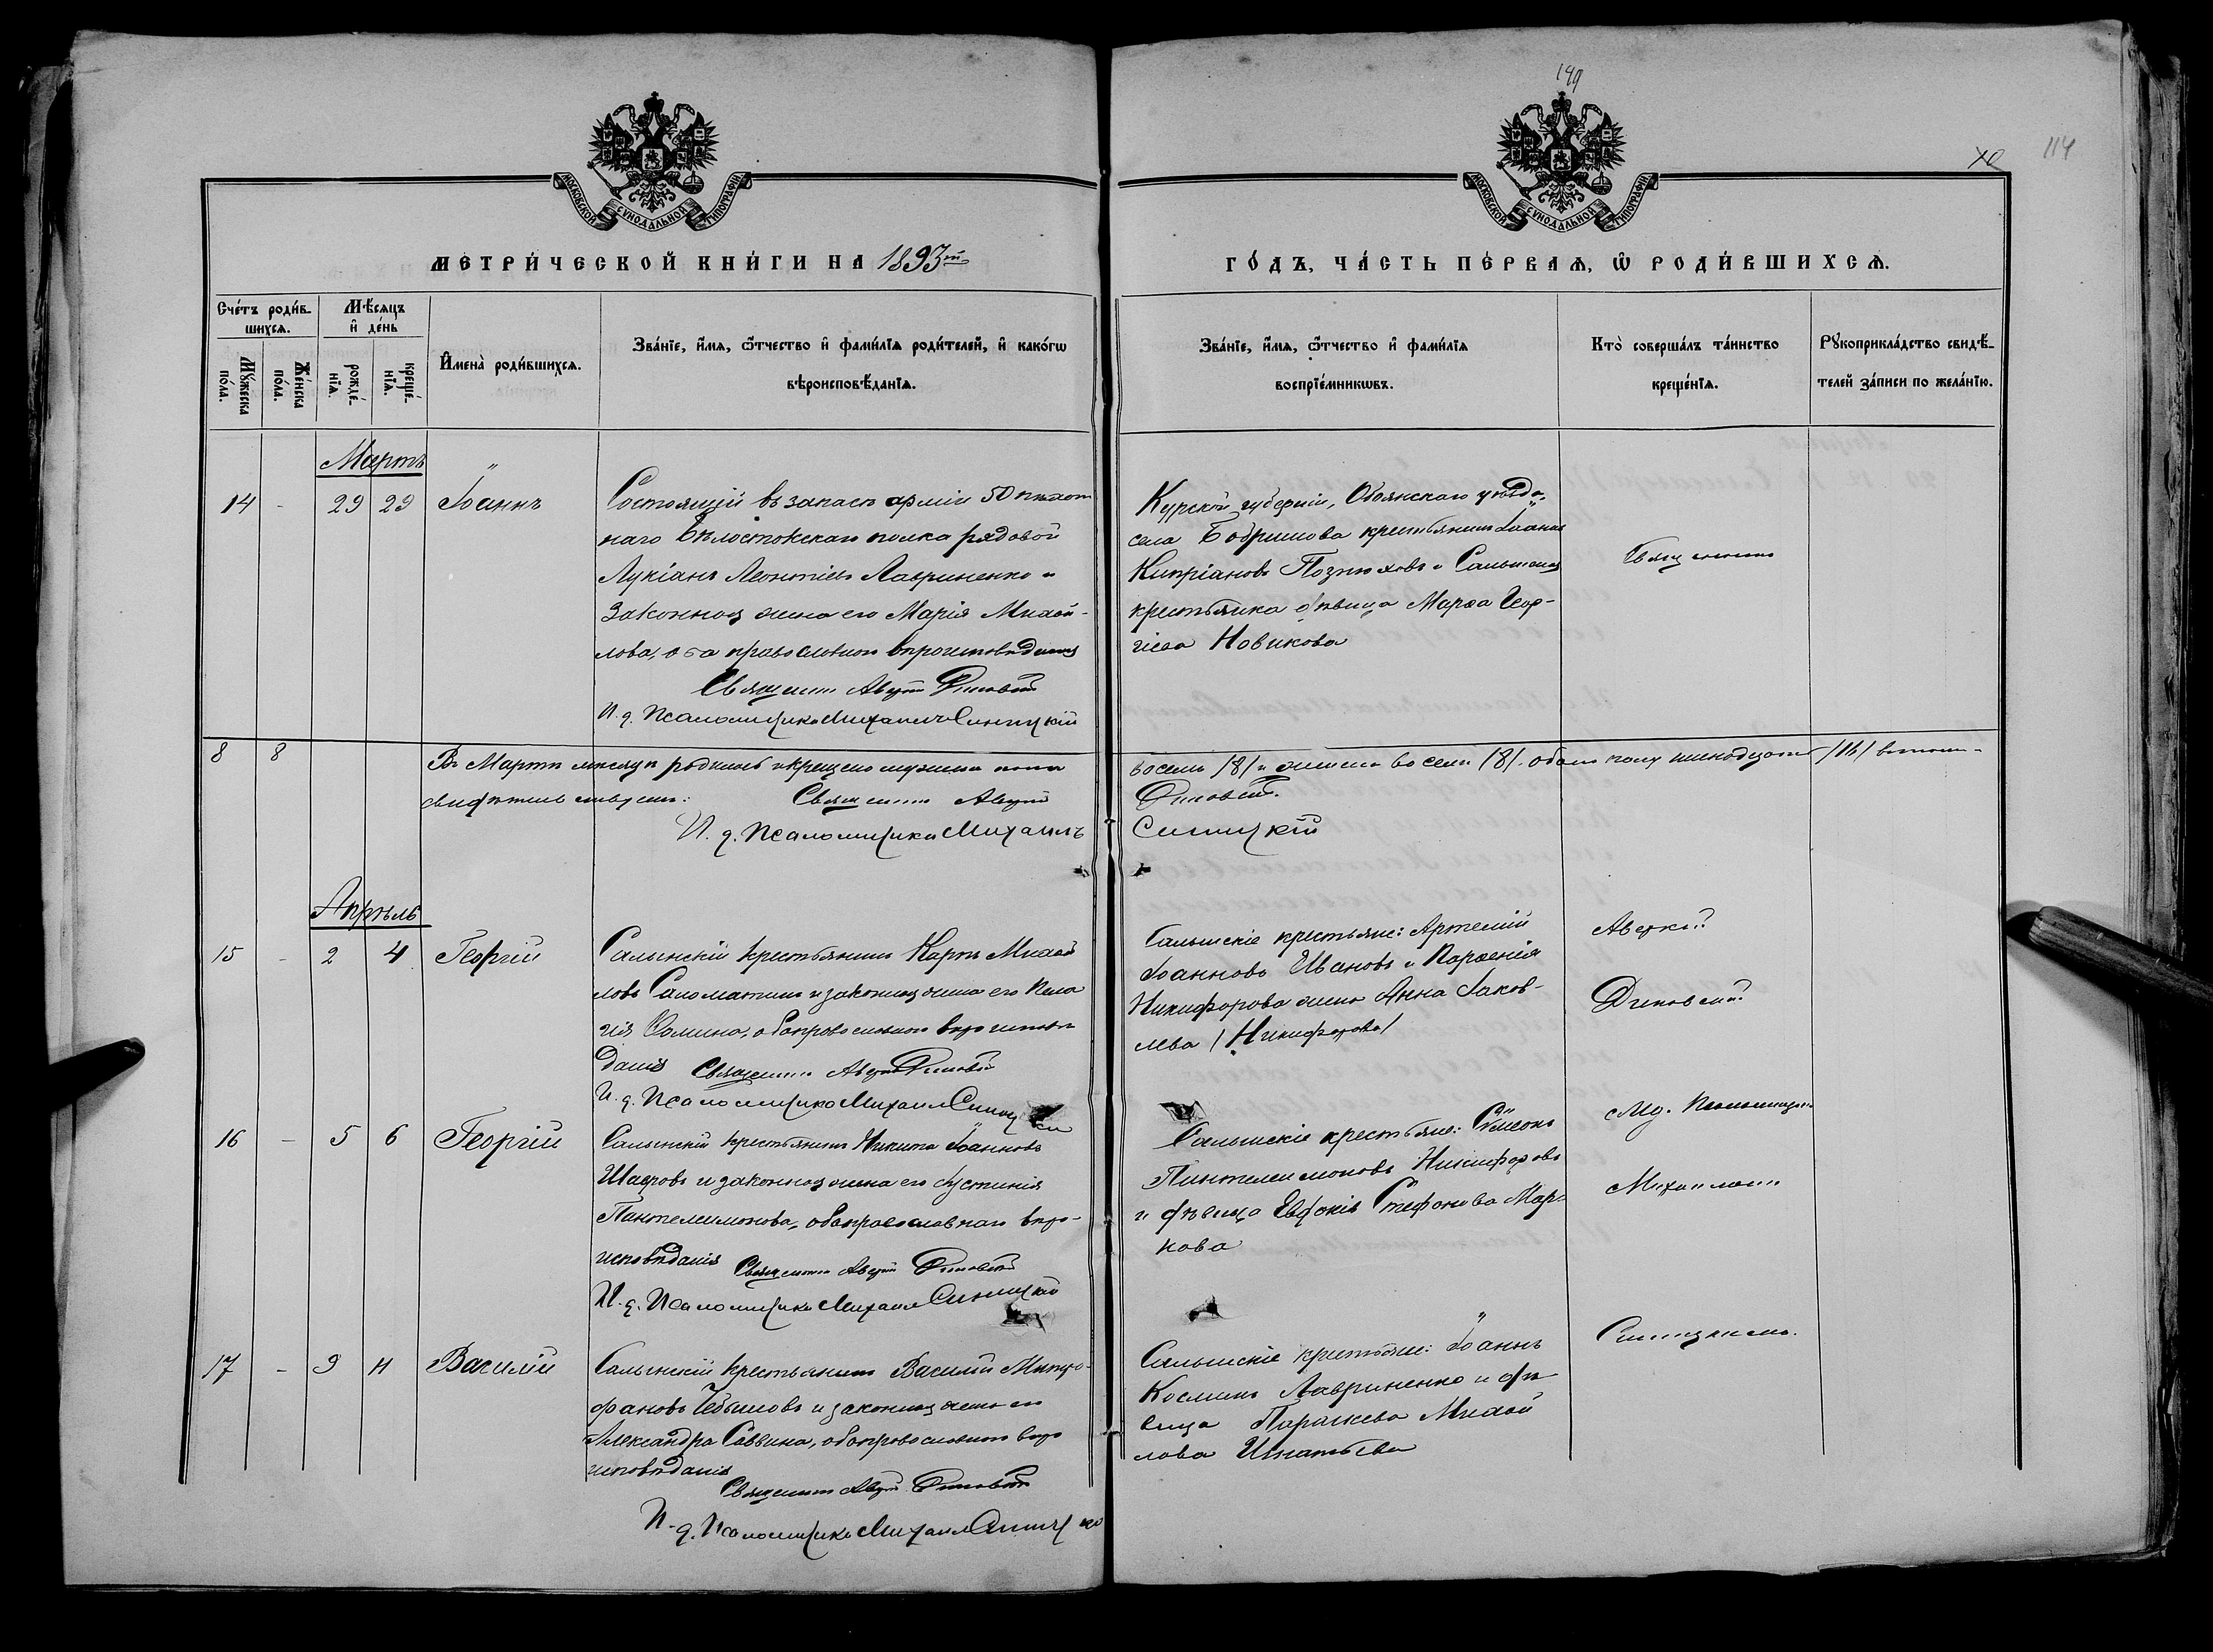 149
114
МОСКОВСКОЙ СУНОДАЛЬНОЙ ТИПОГРАФІИ
МОСКОВСКОЙ СУНОДАЛЬНОЙ ТИПОГРАФІИ
МЕТРИ́ЧЕСКОЙ КНИ́ГИ НА 1893й
ГО́ДЪ, ЧА́СТЬ ПЕ́РВАѦ, Ѡ РОДИ́ВШИХСѦ.
Счéтъ роди́в-
шихсѧ.
Мꙋ́жеска пóла.
Жéнска пóла.
Мѣ́сѧцъ
и҆ дéнь
рождé-
нїѧ.
крещé-
нїѧ.
И҆менà роди́вшихсѧ.
Звáнїе, и҆́мѧ, ѻ҆́тчество и҆ фами́лїѧ роди́телей, и҆ какóгѡ
вѣроисповѣ́данїѧ.
Звáнїе, и҆́мѧ, ѻ҆́тчество и҆ фами́лїѧ
воспрїéмникѡвъ.
Ктò совершáлъ тáинство
крещéнїѧ.
Рꙋкоприклáдство свидѣ́-
телей зáписи по желáнїю.
Мартъ
14 - 29 29 Іоаннъ
Состоящій въ запасѣ арміи 50 пѣхот
наго Бѣлостокскаго полка рядовой
Лукіанъ Леонтіевъ Лавриненко и
законная жена его Марія Михай-
лова, оба православнаго вѣроисповѣданія
Священникъ Аверкій Диковскій
И. д. Псаломщика Михаилъ Синицкій
Курской губерніи, Обоянскаго уѣзда,
села Бобрышова крестьянинъ Іоаннъ
Кипріановъ Позняховъ и Салынская
крестьянка дѣвица Марѳа Геор-
гіева Новикова
Священникъ
8 8
Въ Мартѣ мѣсяцѣ родилось и крещено мужеска пола
восемь /8/ и женска восемь /8/. обоего полу шестнадцать /16/ в томъ
свидѣтельствуемъ: Священникъ Аверкій
Диковскій.
И. д. Псаломщика Михаилъ
Синицкій
Апрѣль
15 - 2 4 Георгій
Салынскій крестьянинъ Карпъ Михай
ловъ Саломатинъ и законная жена его Пела
гія Ѳомина, оба православнаго вѣроисповѣ
данія Священникъ Аверкій Диковскій
И. д. Псаломщика Михаилъ Синицкій
Салынскіе крестьяне: Артемій
Іоанновъ Ивановъ и Парѳенія
Никифорова жена Анна Іаков-
лева /Никифорова/
Аверкій
Диковскій
16 - 5 6 Георгій
Салынскій крестьянинъ Никита Іоанновъ
Шавровъ и законная жена его Іустинія
Пантелеимонова, оба православнаго вѣро-
исповѣданія Священникъ Аверкій Диковскій
И. д. Псаломщика Михаилъ Синицкій
Салынскіе крестьяне: Сѵмеонъ
Пантелеимоновъ Никифоровъ
и дѣвица Евдокія Стефанова Мар-
кова
И д. Псаломщика
Михаиломъ
17 - 9 11 Василій
Салынскій крестьянинъ Василій Митро-
фановъ Чебышовъ и законная жена его
Александра Саввина, оба православнаго вѣро
исповѣданія
Священникъ Аверкій Диковскій
И. д. Псаломщика Михаилъ Синицкій
Салынскіе крестьяне: Іоаннъ
Косминъ Лавриненко и дѣ-
вица Параскева Михай
лова Игнатьева
Синицкимъ.